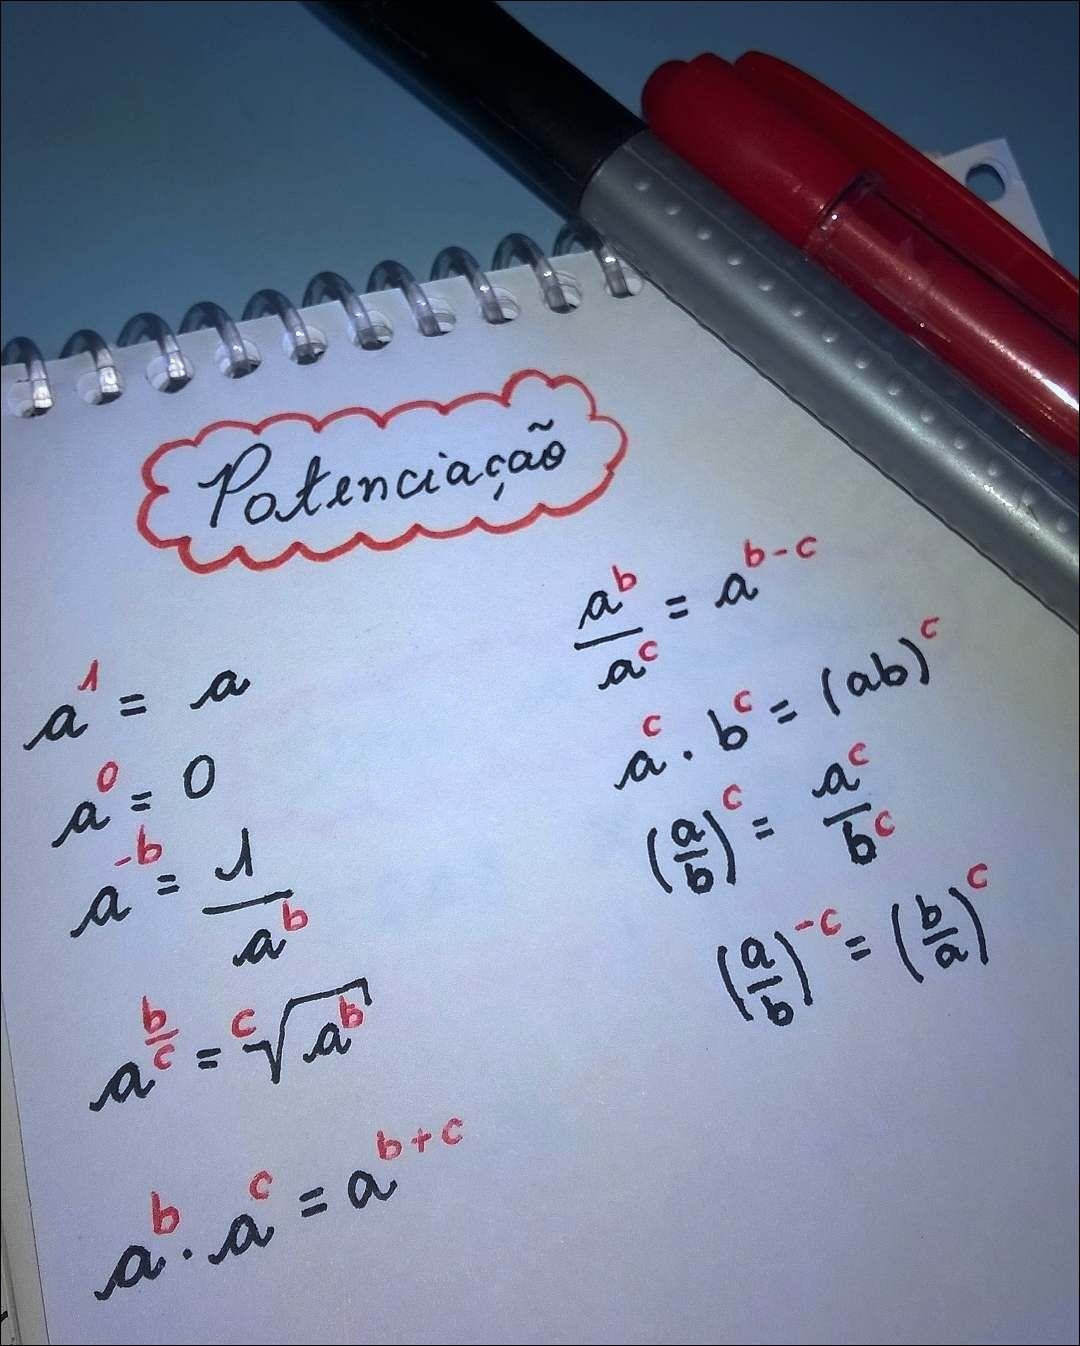 Potenciação
a¹ = a
a⁰ = 0
a⁻ᵇ = 1/aᵇ
a^(b/c) = ᶜ√aᵇ
aᵇ · aᶜ = aᵇ⁺ᶜ
aᵇ/aᶜ = aᵇ⁻ᶜ
aᶜ · bᶜ = (ab)ᶜ
(a/b)ᶜ = aᶜ/bᶜ
(a/b)⁻ᶜ = (b/a)ᶜ